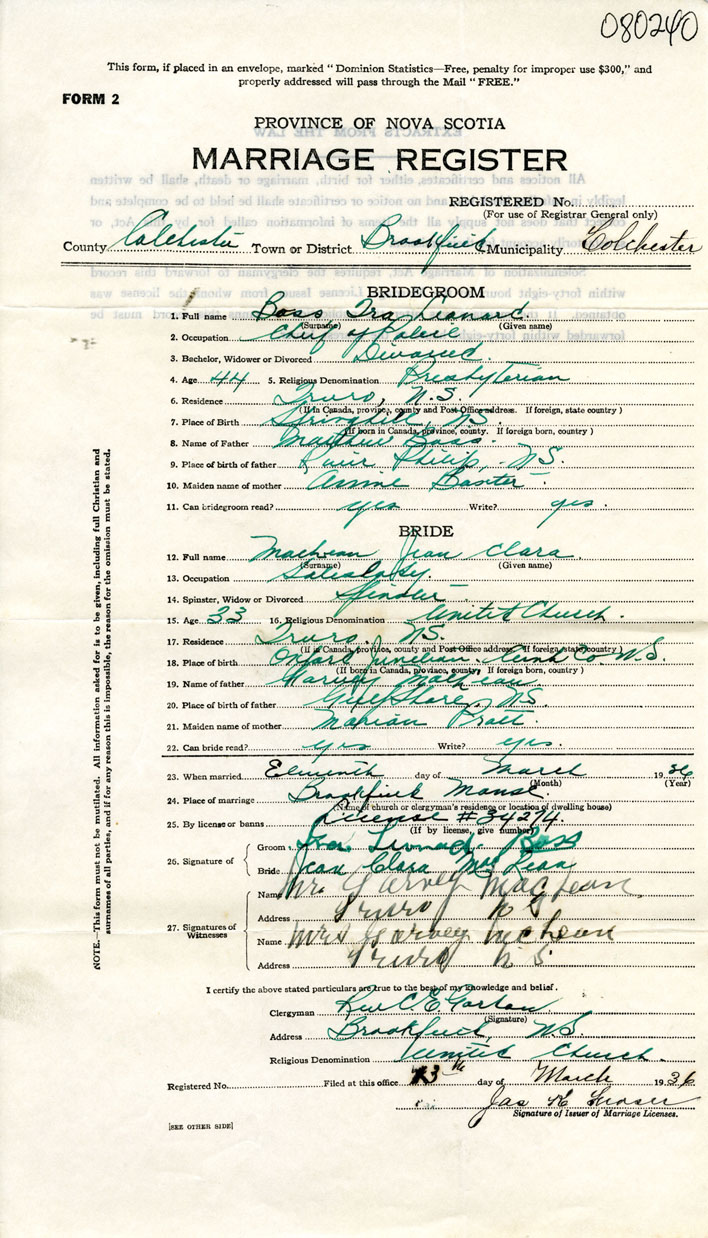 080240
This form, if placed in an envelope, marked "Dominion Statistics—Free, penalty for improper use $300," and
properly addressed will pass through the Mail "FREE."
FORM 2
PROVINCE OF NOVA SCOTIA
MARRIAGE REGISTER
REGISTERED No.
(For use of Registrar General only)
County Colchester Town or District Brookfield Municipality Colchester
BRIDEGROOM
1. Full name Boss Ira Leonard
(Surname) (Given name)
2. Occupation Chief of Police
3. Bachelor, Widower or Divorced Divorced
4. Age 44 5. Religious Denomination Presbyterian
6. Residence Truro, N.S.
(If in Canada, province, county and Post Office address. If foreign, state country)
7. Place of Birth Springhill, N.S.
(If born in Canada, province, county. If foreign born, country)
8. Name of Father Matthew Boss
9. Place of birth of father River Philip, N.S.
10. Maiden name of mother Annie Baxter
11. Can bridegroom read? yes Write? yes.
BRIDE
12. Full name MacLean Jean Clara
(Surname) (Given name)
13. Occupation Saleslady.
14. Spinster, Widow or Divorced Spinster
15. Age 33 16. Religious Denomination United Church.
17. Residence Truro, N.S.
(If in Canada, province, county and Post Office address. If foreign, state country)
18. Place of birth Oxford Junction, Cumb Co. N.S.
(If born in Canada, province, county, If foreign born, country)
19. Name of father Harvey MacLean
20. Place of birth of father Gulf Shore, N.S
21. Maiden name of mother Marian Pratt.
22. Can bride read? yes Write? yes.
23. When married Eleventh day of March 1936
(Month) (Year)
24. Place of marriage Brookfield Manse.
(Name of church or clergyman's residence or location of dwelling house)
25. By license or banns License #34274.
(If by license, give number)
26. Signature of
Groom Ira Leonard Boss
Bride Jean Clara MacLean
27. Signatures of Witnesses
Name Mr. Harvey MacLean
Address Truro N S
Name Mrs Harvey McLean
Address Truro N. S.
I certify the above stated particulars are true to the best of my knowledge and belief.
Clergyman Rev C. E.
(Signature)
Address Brookfield, N.S.
Religious Denomination United Church.
Registered No. Filed at this office 13th day of March 1936
Jas
Signature of Issuer of Marriage Licenses.
[SEE OTHER SIDE]
NOTE.—This form must not be mutilated. All information asked for is to be given, including full Christian and
surnames of all parties, and if for any reason this is impossible, the reason for the omission must be stated.